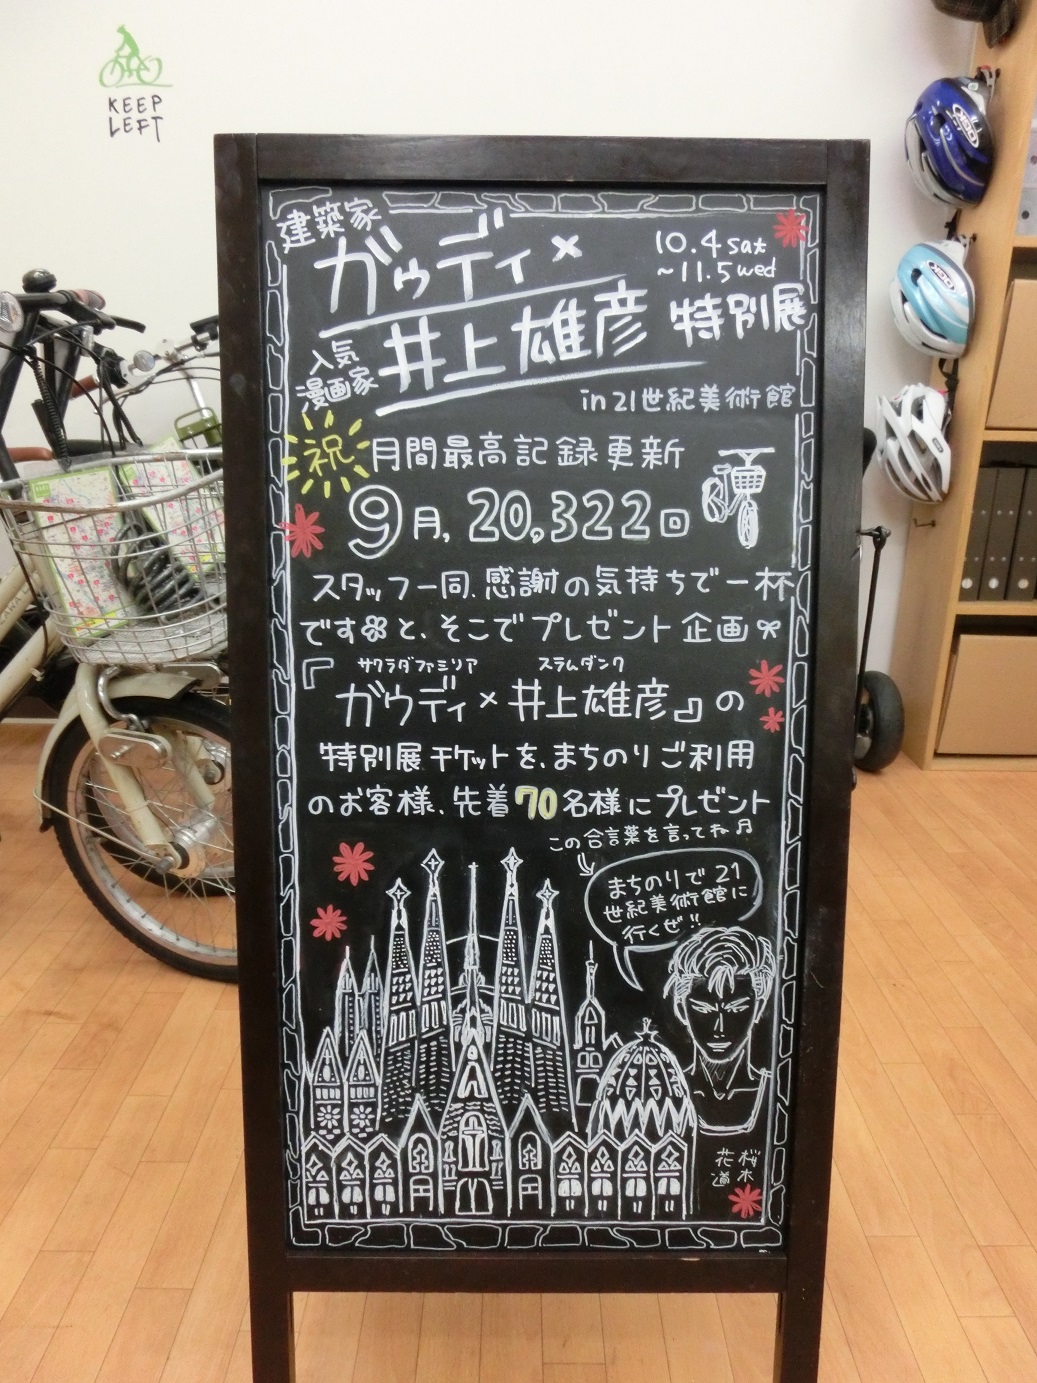 KEEP
LEFT
建築家
ガウディ×
10.4 sat
~11.5 wed
人気
漫画家
井上雄彦
特別展
in 21世紀美術館
祝 月間最高記録更新
9月, 20,322回
スタッフ一同、感謝の気持ちで一杯
ですと、そこでプレゼント企画
サクラダファミリア スラムダンク
『ガウディ×井上雄彦』の
特別展チケットを、まちのりご利用
のお客様、先着70名様にプレゼント
この合言葉を言ってネ♬
まちのりで21
世紀美術館に
行くぜ!!
桜木
花道